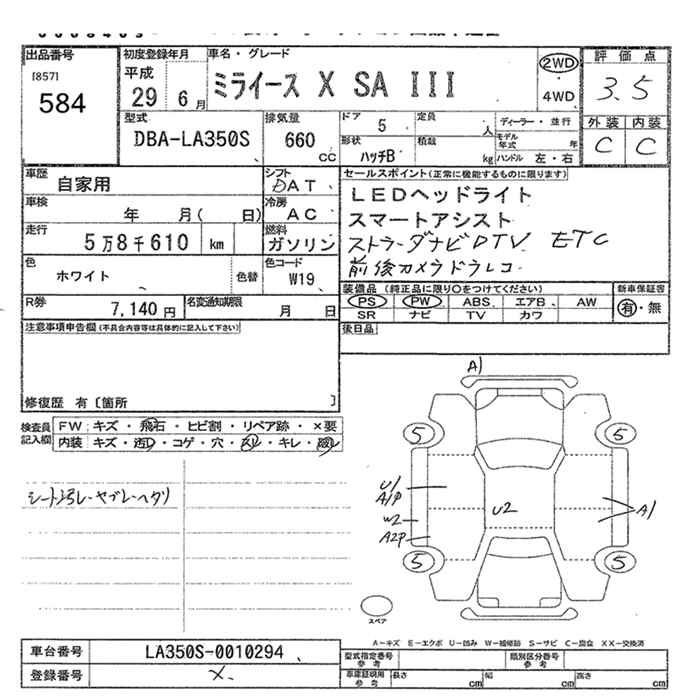 出品番号
[857]
584
初度登録年月
平成
29 6月
車名・グレード
ミライース X SA III
2WD
4WD
評価点
3.5
外装 内装
C C
型式
DBA-LA350S
排気量
660
cc
ドア 5
形状 ハッチB
定員 人
積載 kg
ディーラー・並行
モデル年式 年
ハンドル 左・右
車歴
自家用
シフト
DAT
車検
年 月( 日)
冷房
AC
走行
5万8千610 km
燃料
ガソリン
色
ホワイト
色替
色コード
W19
R券
7,140円
名変通知期限
月 日
セールスポイント(正常に機能するものに限ります)
LEDヘッドライト
スマートアシスト
ストラーダナビDTV ETC
前後カメラドラレコ
装備品 (純正品に限り○をつけてください)
PS PW ABS エアB AW
SR ナビ TV カワ
新車保証書
有・無
後日品
注意事項申告欄(不具合内容等は具体的に記入して下さい)
修復歴 有〔箇所 〕
検査員記入欄
FW:キズ・飛石・ヒビ割・リペア跡・×要
内装 キズ・汚レ・コゲ・穴・スレ・キレ・
シート汚レ・ヤブレ・ヘタリ
A1
5
5
U1
A1P
W2
A2P
U2
A1
5
5
スペア
A-キズ E-エクボ U-凹み W-補修跡 S-サビ C-腐食 XX-交換済
車台番号
LA350S-0010294
登録番号
×
型式指定番号
参考
類別区分番号
参考
車庫証明用
参考
長さ cm
幅 cm
高さ cm